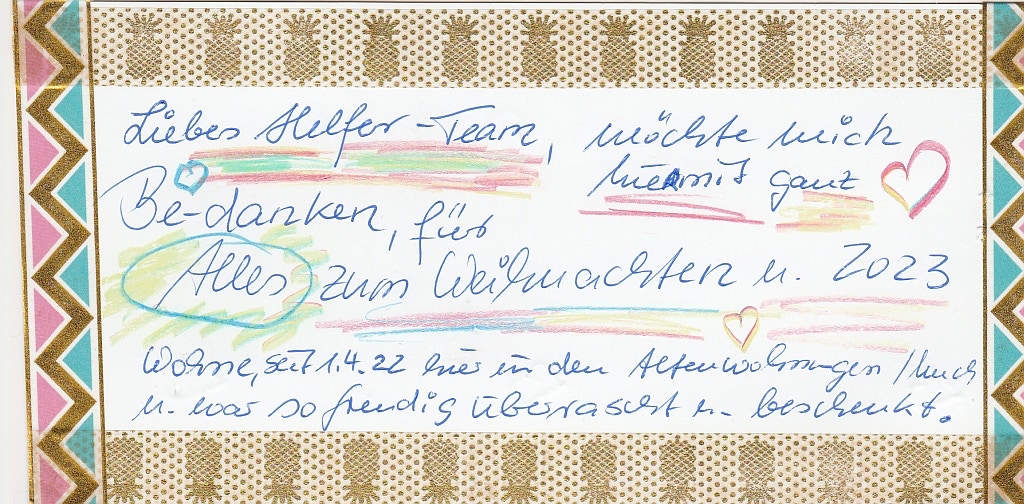 Liebes Helfer-Team, möchte mich
hiermit ganz ♡
Be-danken, für
Alles zum Weihnachten u. 2023
Wohne, seit 1.4.22 hier in den Altenwohnungen /
u. war so freudig überrascht u. beschenkt.